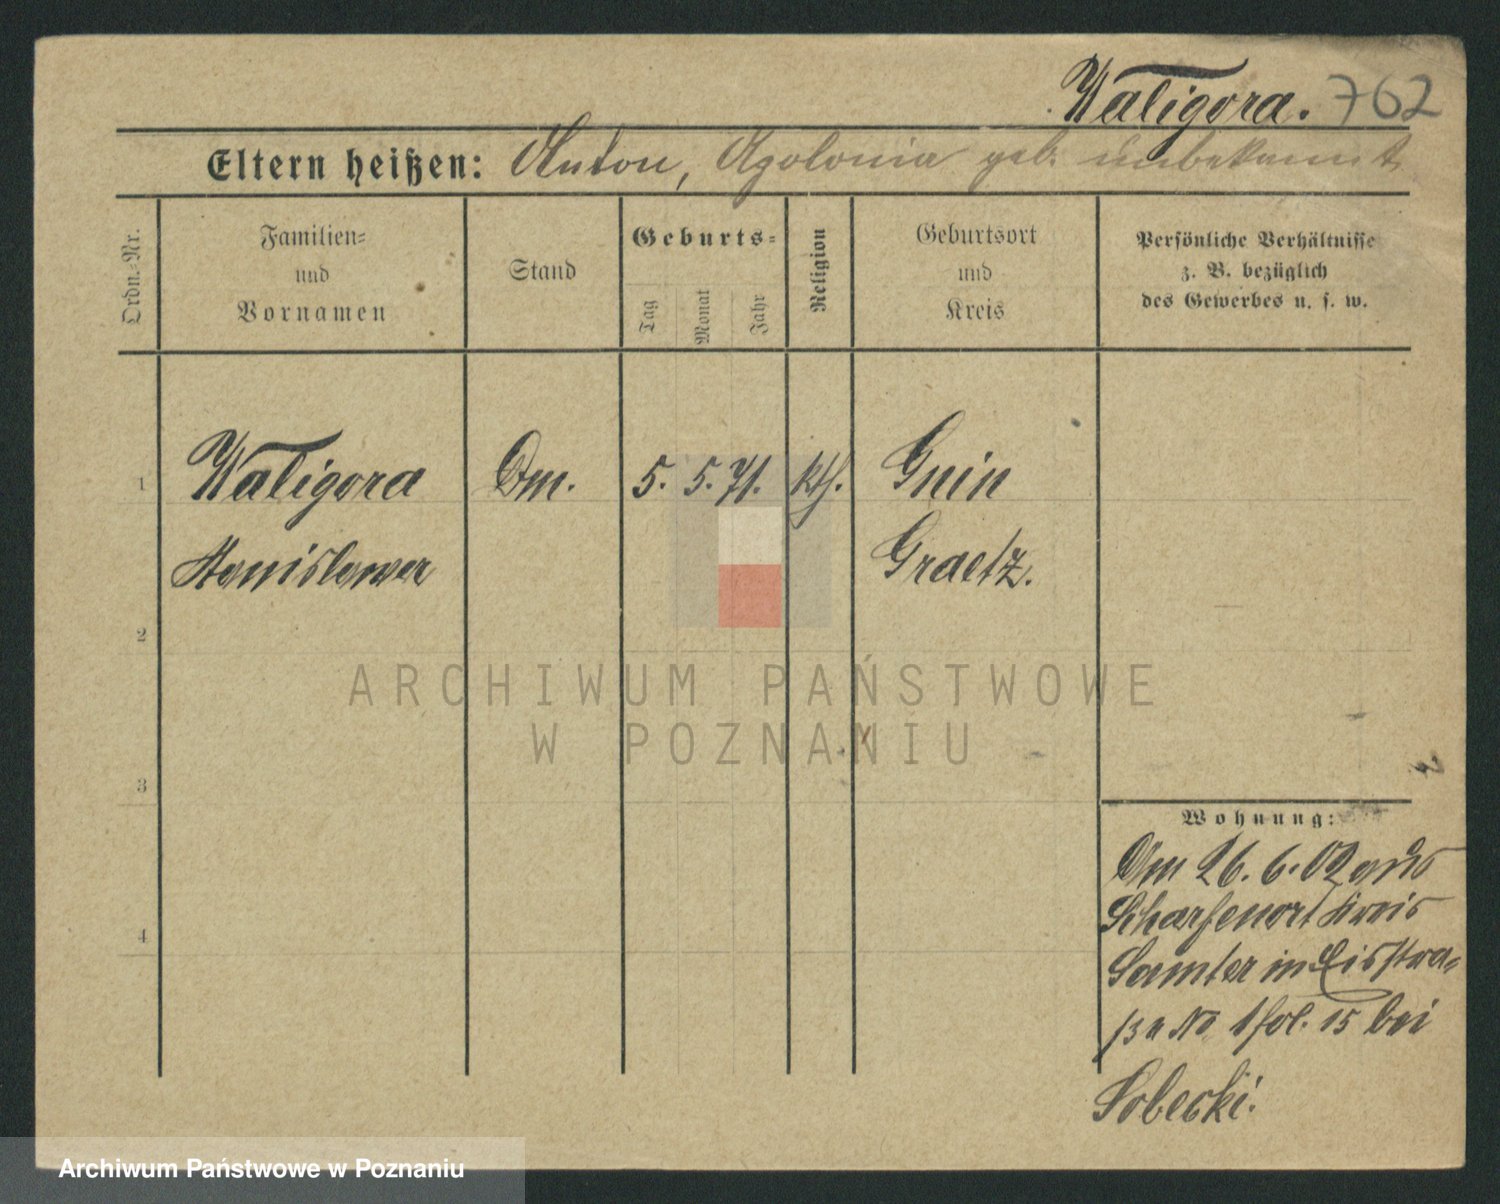 Waligora. 762
Eltern heißen: Anton, Apolonia geb. unbekannt
Ordn.=Nr.
Familien=
und
Vornamen
Stand
Geburts=
Tag
Monat
Jahr
Religion
Geburtsort
und
Kreis
Persönliche Verhältnisse
z. B. bezüglich
des Gewerbes u. s. w.
1 Waligora 5. 5. 71. kth.
Graetz.
2
3
4
Wohnung:
Am 26. 6. 02 aus
Scharfenort Kreis
Samter in
No 1 fol. 15 bei
Sobecki.
ARCHIWUM PAŃSTWOWE
W POZNANIU
Archiwum Państwowe w Poznaniu